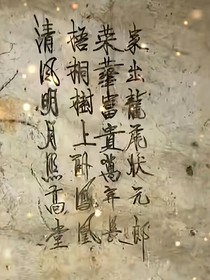 家出龍虎狀元郎
榮華富貴萬年長
梧桐樹上臥鳳凰
清風明月照高堂